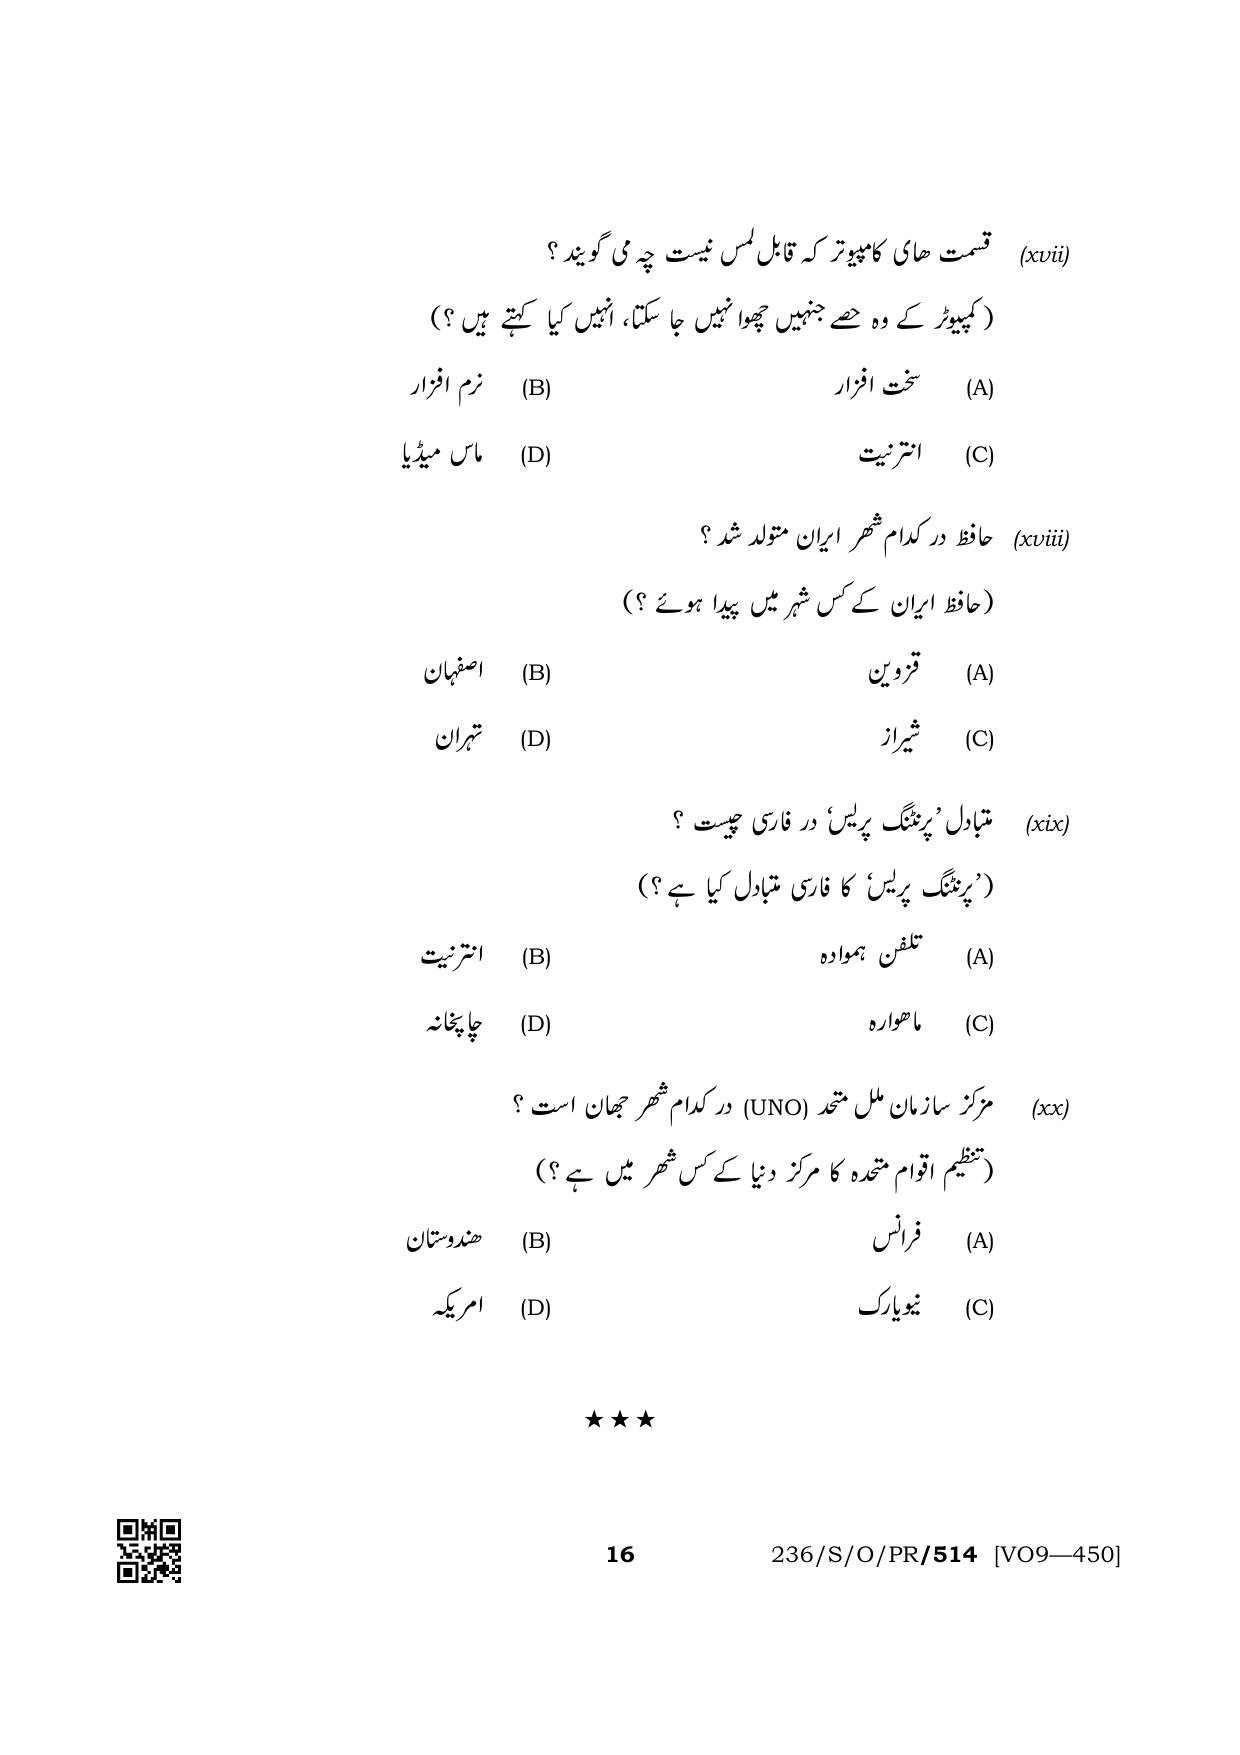 (xvii) قسمت های کامپیوتر کہ قابل لمس نیست چہ می گویند ؟
( کمپیوٹر کے وہ حصے جنہیں چھوا نہیں جا سکتا، انہیں کیا کہتے ہیں ؟)
(A) سخت افزار (B) نرم افزار
(C) انترنیت (D) ماس میڈیا
(xviii) حافظ در کدام شھر ایران متولد شد ؟
(حافظ ایران کے کس شہر میں پیدا ہوئے ؟)
(A) قزوین (B) اصفہان
(C) شیراز (D) تہران
(xix) متبادل ’پرنٹنگ پریس‘ در فارسی چیست ؟
(’پرنٹنگ پریس‘ کا فارسی متبادل کیا ہے ؟)
(A) تلفن ہموادہ (B) انترنیت
(C) ماھوارہ (D) چاپخانہ
(xx) مزکز سازمان ملل متحد (UNO) در کدام شھر جھان است ؟
(تنظیم اقوام متحدہ کا مرکز دنیا کے کس شھر میں ہے ؟)
(A) فرانس (B) ھندوستان
(C) نیویارک (D) امریکہ
★ ★ ★
16 236/S/O/PR/514 [VO9—450]